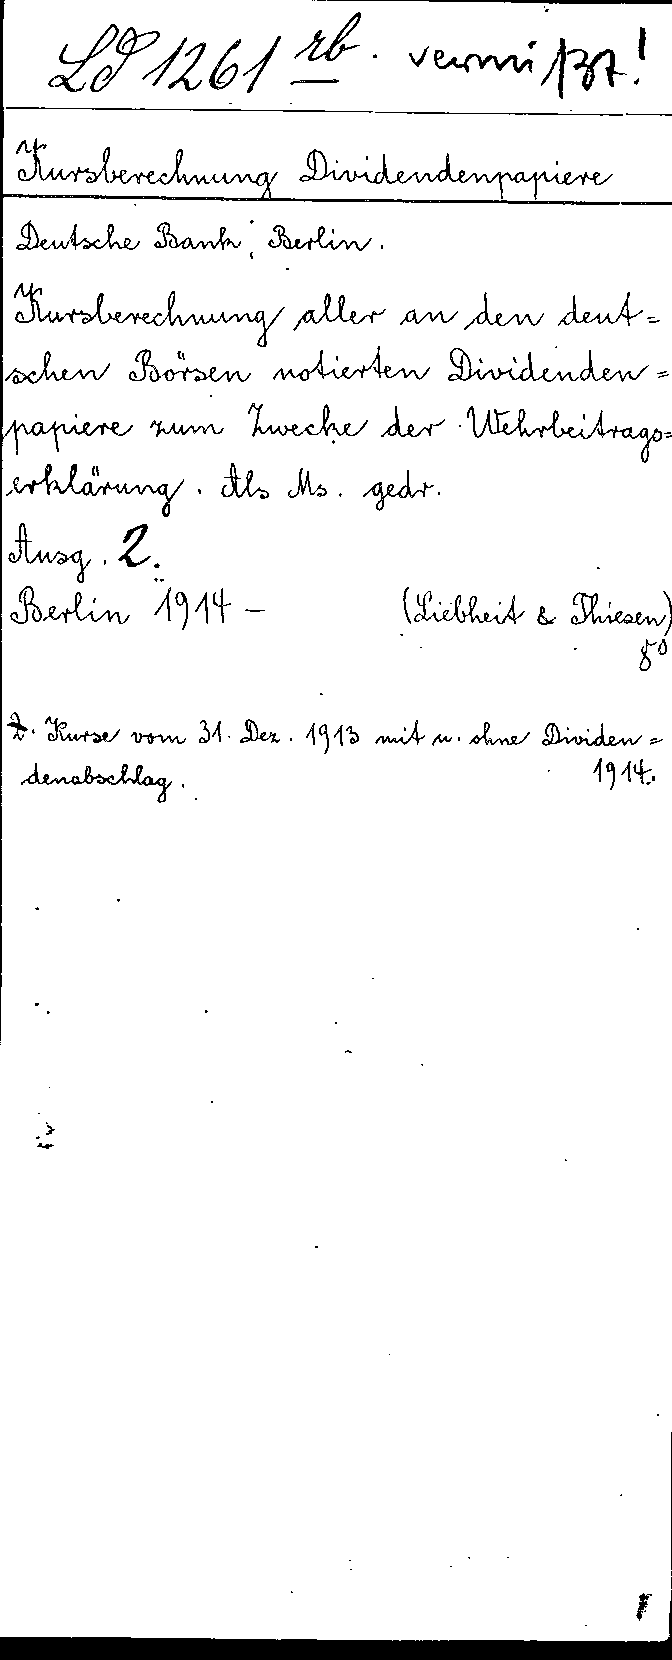 LD 1261 rb. vermißt!
Kursberechnung Dividendenpapiere
Deutsche Bank, Berlin.
Kursberechnung aller an den deut=
schen Börsen notierten Dividenden=
papiere zum Zwecke der Wehrbeitrags=
erklärung. Als Ms. gedr.
Ausg. 2.
Berlin 1914 – (Liebheit & Thiesen)
8°
2. Kurse vom 31. Dez. 1913 mit u. ohne Dividen=
denabschlag. 1914.